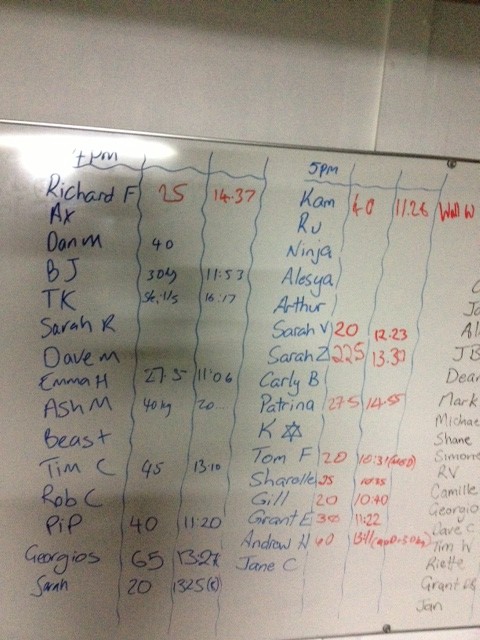 4pm
Richard F 25 14.37
Ax
Dan M 40
BJ 30kg 11:53
TK 16:17
Sarah R
Dave M
Emma H 27.5 11:06
Ash M 40kg 20...
Beast
Tim C 45 13:10
Rob C
PiP 40 11:20
Georgios 65
Sarah 20 1325
5pm
Kam 11.26
Ru
Ninja
Alesya
Arthur
Sarah V 20 12.23
Sarah Z 22.5
Carly B
Patrina 27.5 14.55
K ✡
Tom F 20
Sharolle 25
Gill 20 10:40
Grant E 11:22
Andrew H 60
Jane C
Dean
Mark
Michae
Shane
Simone
RV
Camille
Georgio
Dave C
Tim W
Riette
Grant
Jan